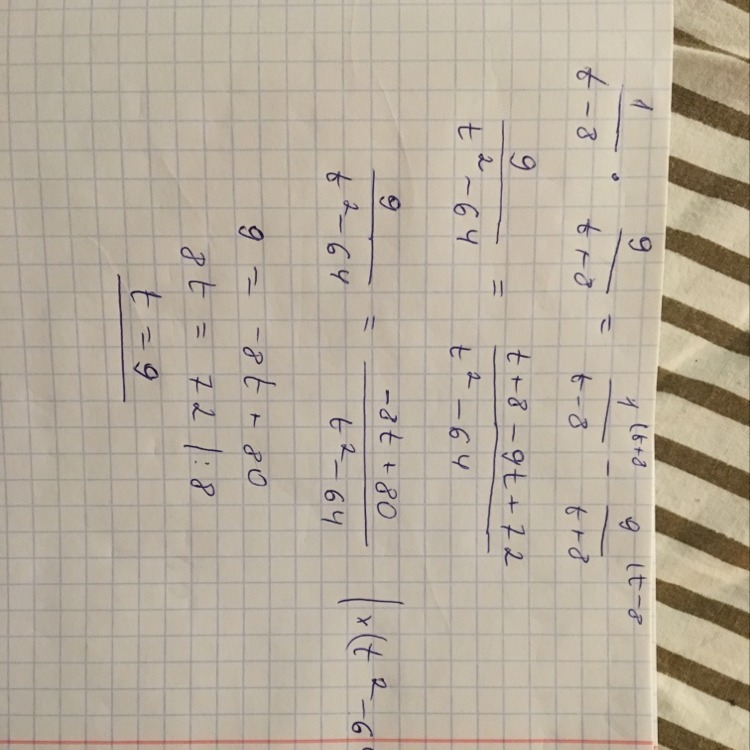 1/(t-8) · 9/(t+8) = 1(t+8/(t-8) - 9(t-8/(t+8)
9/(t²-64) = (t+8-9t+72)/(t²-64)
9/(t²-64) = (-8t+80)/(t²-64) |×(t²-64
9 = -8t+80
8t = 72 |:8
t = 9